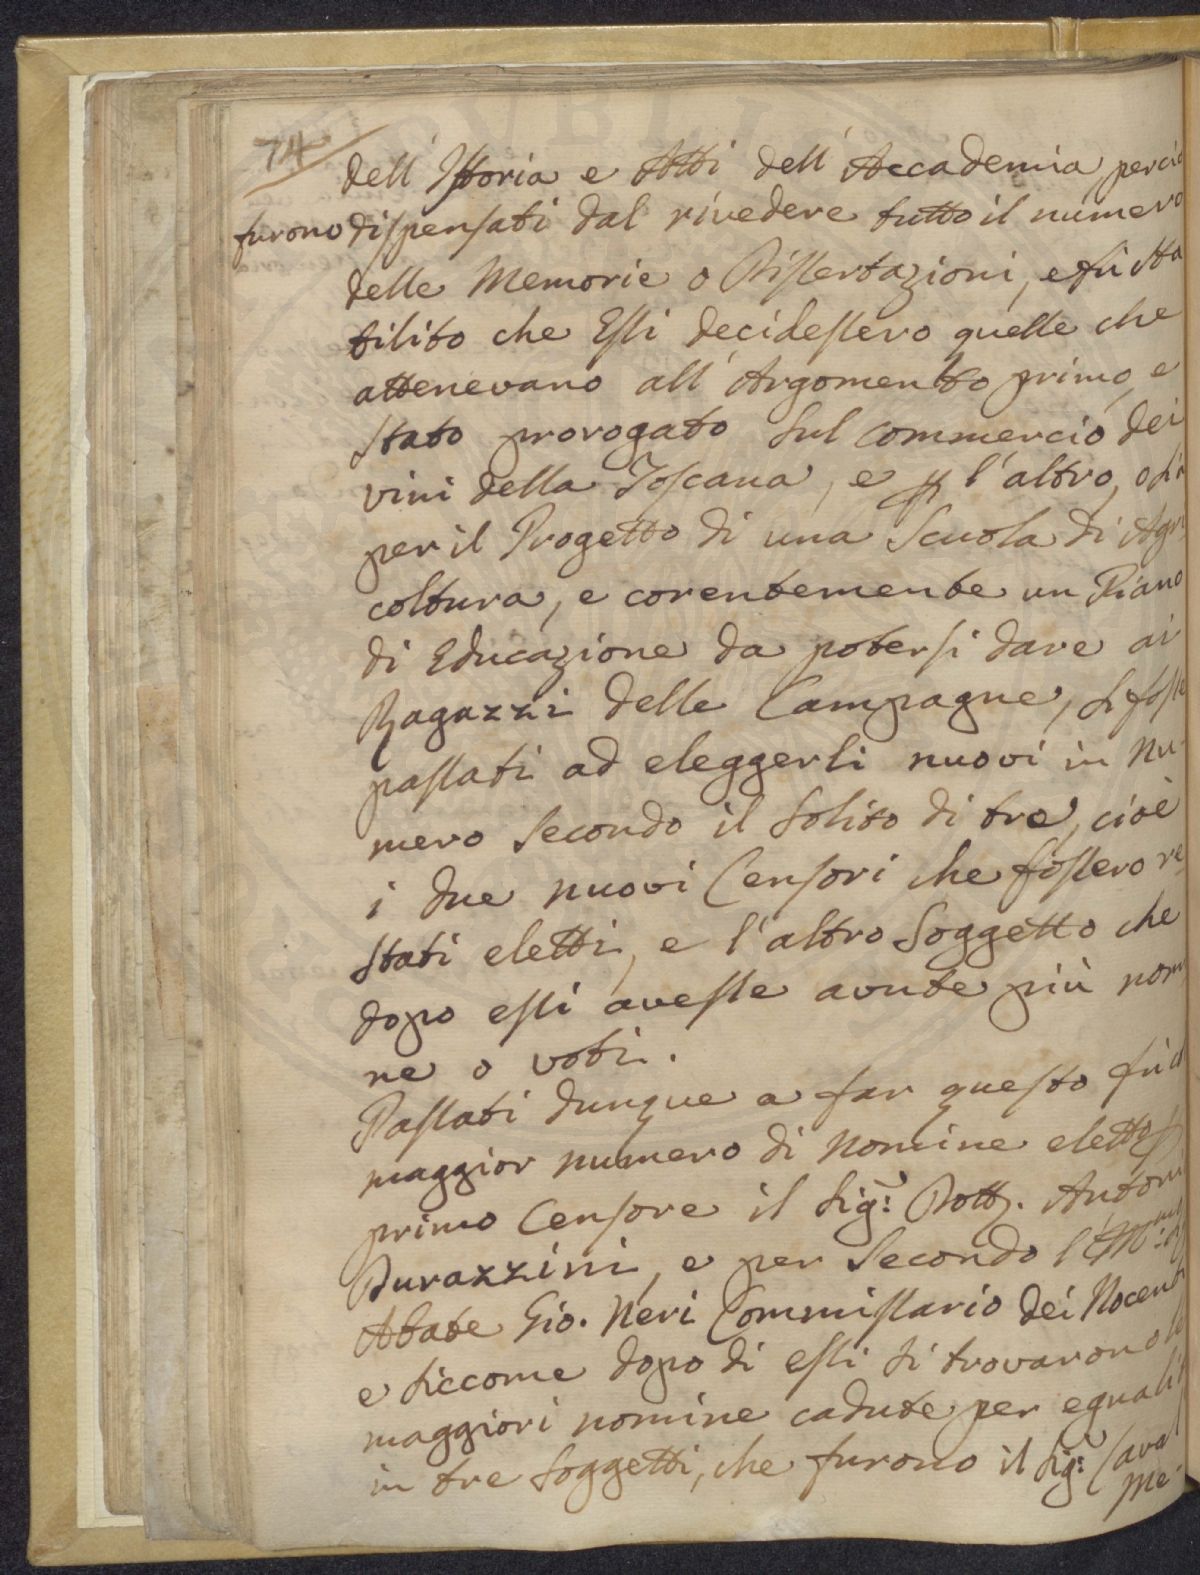 74
dell'Istoria e Atti dell'Accademia perciò
furono dispensati dal rivedere tutto il numero
delle Memorie o Dissertazioni, e fù sta
bilito che Essi decidessero quelle che
attenevano all'Argomento primo, e
stato prorogato sul commercio dei
vini della Toscana, e l'altro, o sia
per il Progetto di una Scuola di Agri
coltura, e corentemente un Piano
di Educazione da potersi dare ai
Ragazzi delle Campagne, si fosse
passati ad eleggerli nuovi in Nu-
mero secondo il solito di tre, cioè
i due nuovi Censori che fossero re
stati eletti, e l'altro Soggetto che
dopo essi avesse avute più nomi
ne o voti.
Passati dunque a far questo fù
maggior numero di Nomine eletto
primo Censore il Sig: Dott. Antoni
Durazzini, e per Secondo
Abate Gio. Neri Commissario dei Nocenti
e siccome dopo di essi si trovarono
maggiori nomine cadute per egualità
in tre Soggetti, che furono il Sig: Caval
Me-